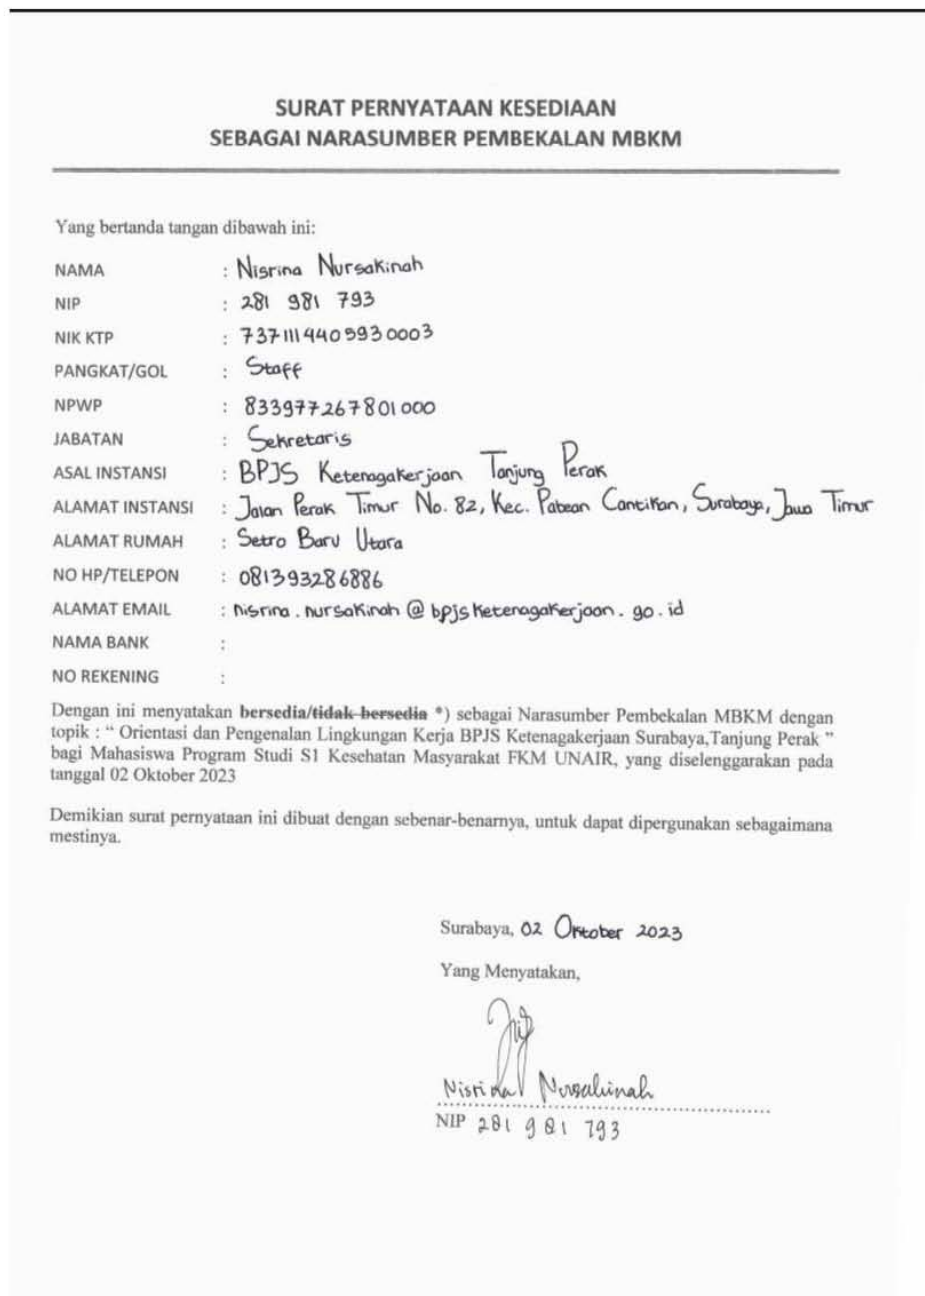 SURAT PERNYATAAN KESEDIAAN
SEBAGAI NARASUMBER PEMBEKALAN MBKM
Yang bertanda tangan dibawah ini:
NAMA : Nisrina Nursakinah
NIP : 281 981 793
NIK KTP : 7371114405930003
PANGKAT/GOL : Staff
NPWP : 833977267801000
JABATAN : Sekretaris
ASAL INSTANSI : BPJS Ketenagakerjaan Tanjung Perak
ALAMAT INSTANSI : Jalan Perak Timur No. 82, Kec. Pabean Cantikan, Surabaya, Jawa Timur
ALAMAT RUMAH : Setro Baru Utara
NO HP/TELEPON : 081393286886
ALAMAT EMAIL : nisrina.nursakinah@bpjsketenagakerjaan.go.id
NAMA BANK :
NO REKENING :
Dengan ini menyatakan bersedia/tidak bersedia *) sebagai Narasumber Pembekalan MBKM dengan
topik : “ Orientasi dan Pengenalan Lingkungan Kerja BPJS Ketenagakerjaan Surabaya,Tanjung Perak ”
bagi Mahasiswa Program Studi S1 Kesehatan Masyarakat FKM UNAIR, yang diselenggarakan pada
tanggal 02 Oktober 2023
Demikian surat pernyataan ini dibuat dengan sebenar-benarnya, untuk dapat dipergunakan sebagaimana
mestinya.
Surabaya, 02 Oktober 2023
Yang Menyatakan,
Nisrina Nursakinah
NIP 281 981 793